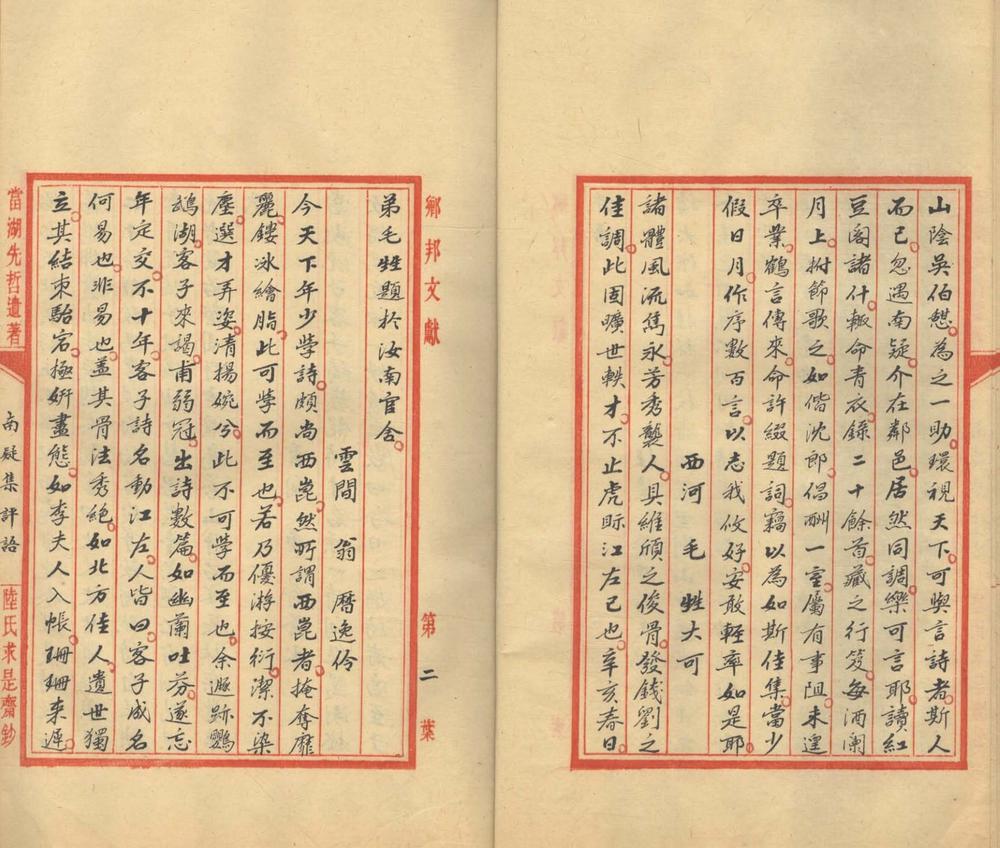 山陰吳伯憇為之一助環視天下可與言詩者斯人
而已忽遇南疑介在鄰邑居然同調樂可言耶讀紅
豆閣諸什輙命青衣錄二十餘首藏之行笈每酒闌
月上拊節歌之如偕沈郎倡酬一室屬有事阻未遑
卒業鶴言傳來命許綴題詞竊以為如斯佳集當少
假日月作序數百言以志我攸好安敢輕率如是耶
西河 毛甡大可
諸體風流雋永芳秀襲人具維頎之俊骨發錢劉之
佳調此固曠世軼才不止虎眎江左已也辛亥春日
弟毛甡題於汝南官舍
雲間 翁曆逸伶
今天下年少學詩頗尚西崑然所謂西崑者掩奪靡
麗鏤冰繪脂此可學而至也若乃優游按衍潔不染
塵選才弄姿清揚婉兮此不可學而至也余遯跡鸚
鵡湖客子來謁甫弱冠出詩數篇如幽蘭吐芬遂忘
年定交不十年客子詩名動江左人皆曰客子成名
何易也非易也葢其骨法秀絕如北方佳人遺世獨
立其結束駘宕極姸盡態如李夫人入帳珊珊来遲
鄉邦文獻
第二葉
當湖先哲遺著
南疑集評語
陸氏求是齋鈔